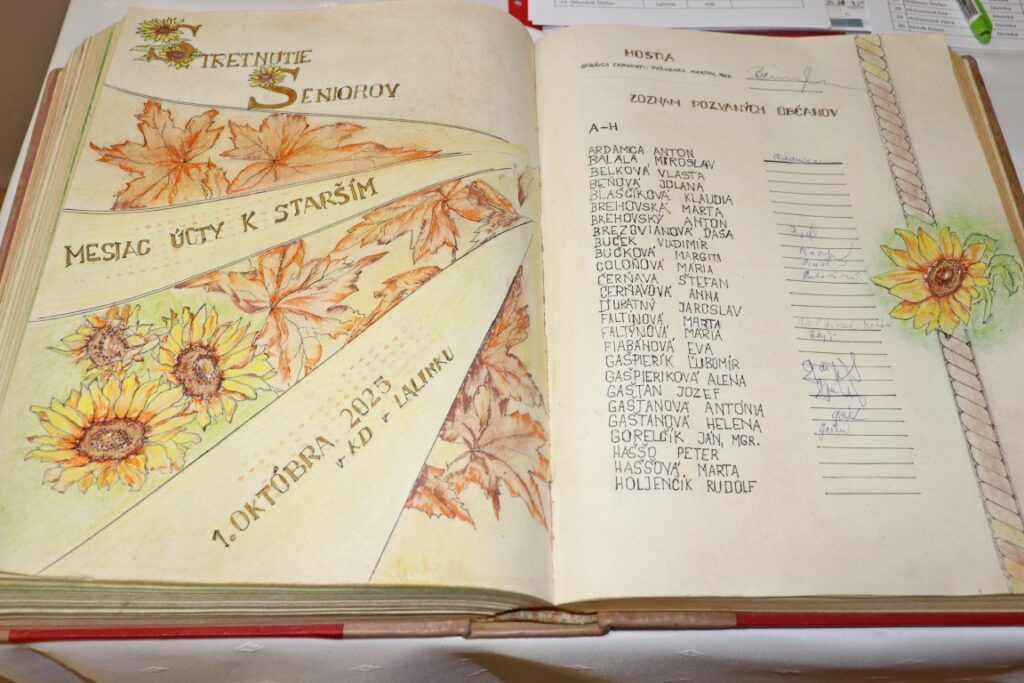 STRETNUTIE
SENIOROV
MESIAC ÚCTY K STARŠÍM
1. OKTÓBRA 2025
v KD v LALINKU
HOSTIA
ZOZNAM POZVANÝCH OBČANOV
A-H
ARDAMICA ANTON
BALALA MIROSLAV
BELKOVÁ VLASTA
BEŇOVÁ JOLANA
BLAŠČÍKOVÁ KLAUDIA
BREHOVSKÁ MARTA
BREHOVSKÝ ANTON
BREZOVIANOVÁ DAŠA
BUČEK VLADIMÍR
BUČKOVÁ MARGITA
COLOŇOVÁ MÁRIA
ČERŇAVA ŠTEFAN
ČERŇAVOVÁ ANNA
ĎURATNÝ JAROSLAV
FALTINOVÁ MARTA
FALTÝNOVÁ MÁRIA
FIABÁNOVÁ EVA
GAŠPIERIK ĽUBOMÍR
GAŠPIERIKOVÁ ALENA
GAŠTAN JOZEF
GAŠTANOVÁ ANTÓNIA
GAŠTANOVÁ HELENA
GORELČÍK JÁN, MGR.
HAŠŠO PETER
HAŠŠOVÁ MARTA
HOLJENČÍK RUDOLF